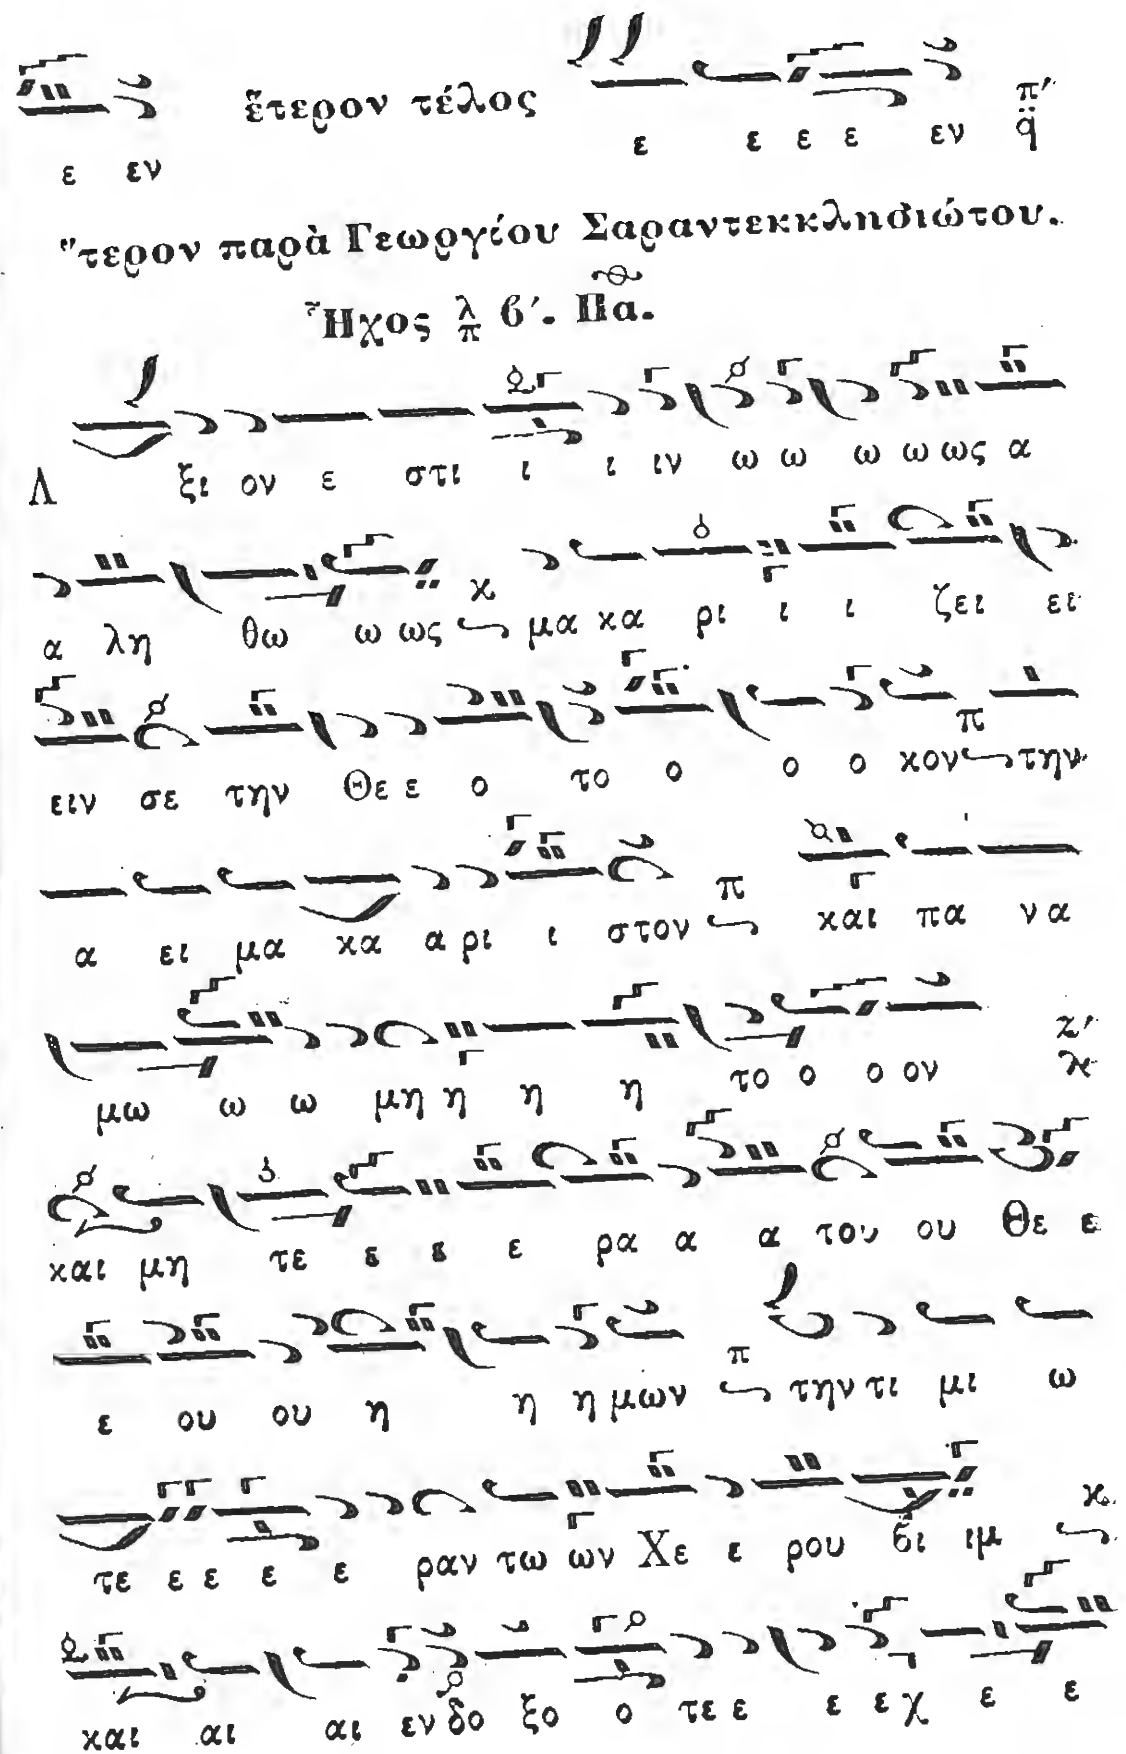 ε εν ἕτερον τέλος ε ε ε ε εν π'
q̈
"τερον παρὰ Γεωργίου Σαραντεκκλησιώτου.
Ἦχος λ/π β'. Πα.
Α ξι ον ε στι ι ι ιν ω ω ω ω ως α
α λη θω ω ως κ μα κα ρι ι ι ζει ει
ειν σε την Θε ε ο το ο ο ο κον π την
α ει μα κα α ρι ι στον π και πα να
μω ω ω μη η η η το ο ο ον ζ'
και μη τε ε ε ε ρα α α του ου Θε ε
ε ου ου η η η μων π την τι μι ω
τε ε ε ε ε ραν τω ων Χε ε ρου βι ιμ κ
και αι αι εν δο ξο ο τε ε ε ε χ ε ε